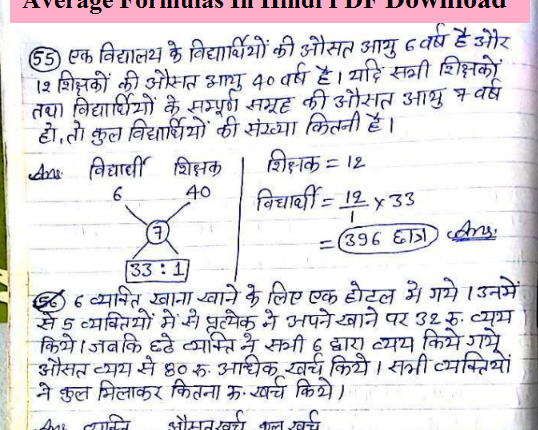 Average Formulas In Hindi PDF Download
(55) एक विद्यालय के विद्यार्थियों की औसत आयु 6 वर्ष है और
12 शिक्षकों की औसत आयु 40 वर्ष है। यदि सभी शिक्षकों
तथा विद्यार्थियों के सम्पूर्ण समूह की औसत आयु 7 वर्ष
हो, तो कुल विद्यार्थियों की संख्या कितनी है।
Ans. विद्यार्थी शिक्षक
6 40
7
33 : 1
शिक्षक = 12
विद्यार्थी = 12/1 x 33
= 396 छात्र Ans.
(56) 6 व्यक्ति खाना खाने के लिए एक होटल में गये। उनमें
से 5 व्यक्तियों में से प्रत्येक ने अपने खाने पर 32 रु. व्यय
किये। जबकि छठे व्यक्ति ने सभी 6 द्वारा व्यय किये गये
औसत व्यय से 80 रु. अधिक खर्च किये। सभी व्यक्तियों
ने कुल मिलाकर कितना रु. खर्च किये।
Ans व्यक्ति औसत खर्च कुल खर्च